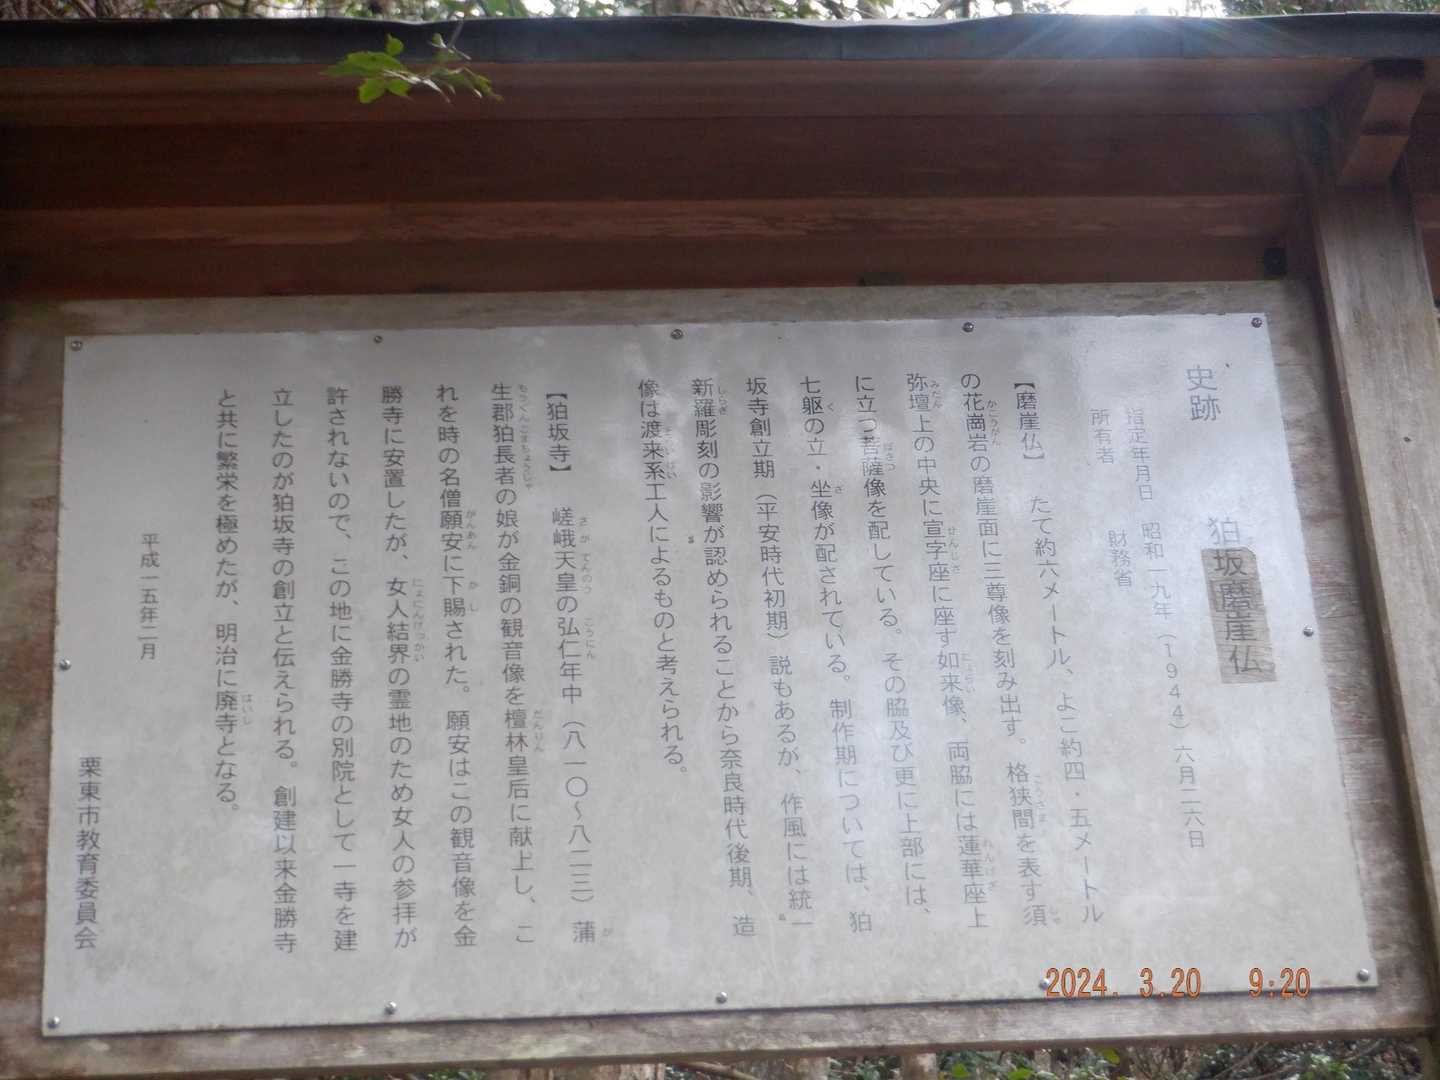 史跡　狛坂磨崖仏
指定年月日　昭和一九年（1944）六月二六日
所有者　財務省
【磨崖仏】　たて約六メートル、よこ約四・五メートル
の花崗岩の磨崖面に三尊像を刻み出す。格狭間を表す須
弥壇上の中央に宣字座に座す如来像、両脇には蓮華座上
に立つ菩薩像を配している。その脇及び更に上部には、
七躯の立・坐像が配されている。制作期については、狛
坂寺創立期（平安時代初期）説もあるが、作風には統一
新羅彫刻の影響が認められることから奈良時代後期、造
像は渡来系工人によるものと考えられる。
【狛坂寺】　嵯峨天皇の弘仁年中（八一〇～八二三）蒲
生郡狛長者の娘が金銅の観音像を檀林皇后に献上し、こ
れを時の名僧願安に下賜された。願安はこの観音像を金
勝寺に安置したが、女人結界の霊地のため女人の参拝が
許されないので、この地に金勝寺の別院として一寺を建
立したのが狛坂寺の創立と伝えられる。創建以来金勝寺
と共に繁栄を極めたが、明治に廃寺となる。
平成一五年二月
栗東市教育委員会
2024. 3.20 9:20